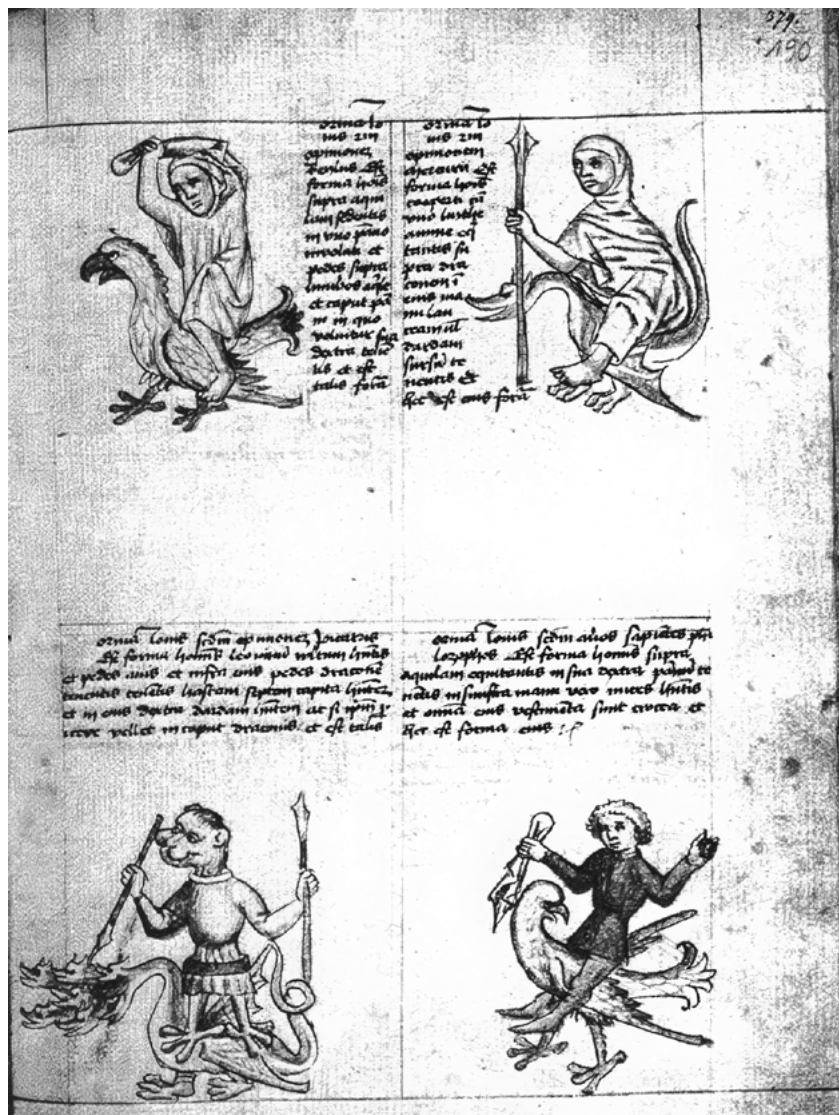 379.
190
orma Io
uis 2m
opinionez
Beylus Est
forma hois
supra aqui
lam sedentis
in vno pano
involuti et
pedes supra
et caput pa
ni in quo
voluitur sua
dextra tenen
tis et est
talis forma
orma Io
uis 2m
opinionem
Mercurii Est
forma hois
cooperti cu
vno linthe
amine eq
tantis su
pra dra
conem i
eius ma
nu lan
ceam ul
dardam
sursu te
nentis Et
hec est eius forma
orma Iouis scdm opinionez picatricis
Est forma hominis leoninu vultum hntis
et pedes auis et infra eius pedes draconem
tenentis septem capita hntem
et in eius dextra dardam hntem ac si ipsum p
icere vellet in caput draconis et est talis
orma Iouis scdm alios sapientes phi
losophos Est forma hominis supra
aquilam equitantis in sua dextra pannu te
nentis in sinistra manu vero nuces hntis
et omnia eius vestimenta sunt crocea et
hec est forma eius :